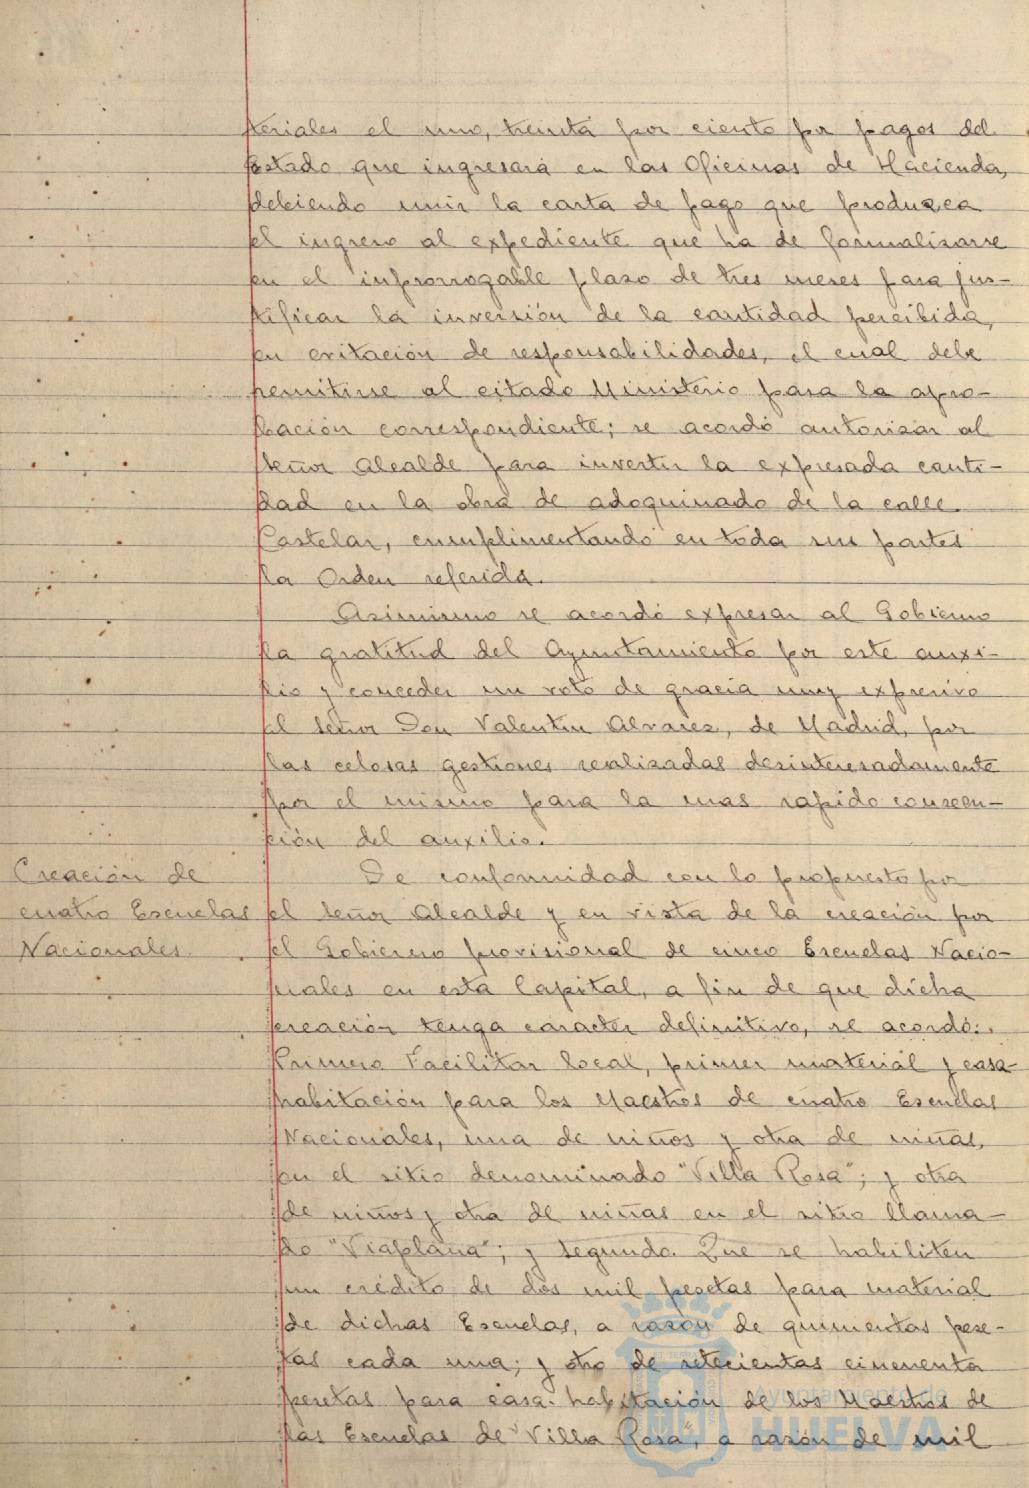 teriales el uno, treinta por ciento por pagos del
Estado que ingresará en las Oficinas de Hacienda,
debiendo unir la carta de pago que produzca
el ingreso al expediente que ha de formalizarse
en el improrrogable plazo de tres meses para jus-
tificar la inversión de la cantidad percibida,
en evitación de responsabilidades, el cual debe
remitirse al citado Ministerio para la apro-
bación correspondiente; se acordó autorizar al
señor Alcalde para invertir la expresada canti-
dad en la obra de adoquinado de la calle
Castelar, cumplimentando en toda sus partes
la Orden referida.
Asimismo se acordó expresar al Gobierno
la gratitud del Ayuntamiento por este auxi-
lio y conceder un voto de gracia muy expresivo
al señor Don Valentin Alvarez, de Madrid, por
las celosas gestiones realizadas desinteresadamente
por el mismo para la mas rapido consecu-
ción del auxilio.
Creación de
cuatro Escuelas
Nacionales.
De conformidad con lo propuesto por
el señor Alcalde y en vista de la creación por
el Gobierno provisional de cinco Escuelas Nacio-
nales en esta Capital, a fin de que dicha
creación tenga caracter definitivo, se acordó:
Primero Facilitar local, primer material y casa-
habitación para los Maestros de cuatro Escuelas
Nacionales, una de niños y otra de niñas,
en el sitio denominado "Villa Rosa"; y otra
de niños y otra de niñas en el sitio llama-
do "Viaplana"; y segundo. Que se habiliten
un crédito de dos mil pesetas para material
de dichas Escuelas, a razón de quinientas pese-
tas cada una; y otro de setecientas cincuenta
pesetas para casa-habitación de los Maestros de
las Escuelas de Villa Rosa, a razón de mil
Ayuntamiento de
HUELVA